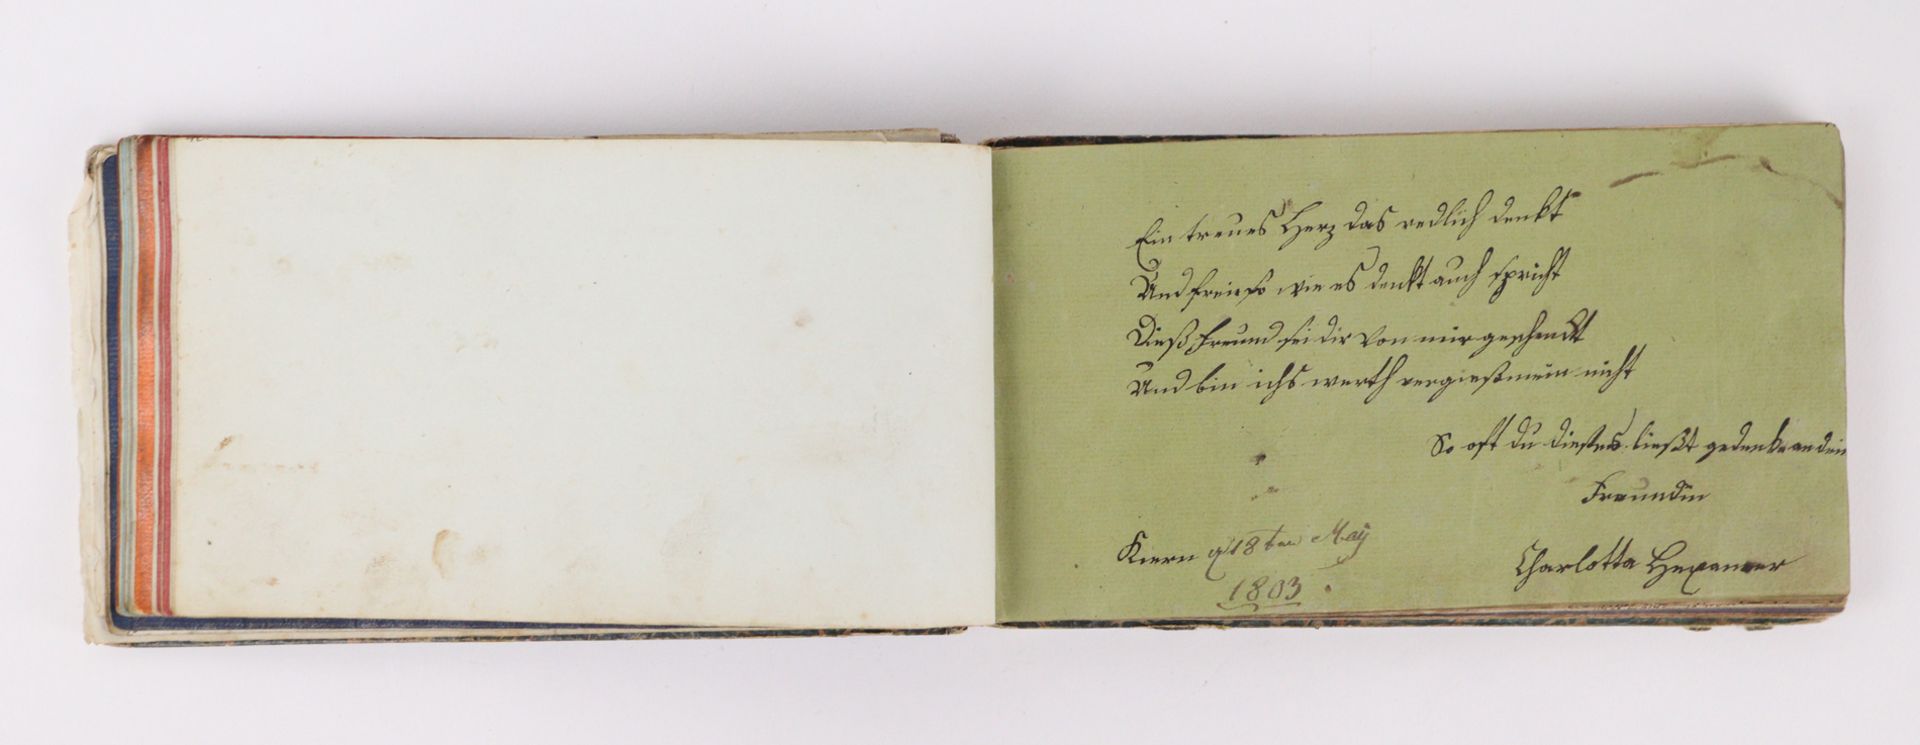 Ein treues Herz das redlich denkt
Und frei so wie es denkt auch spricht
Dieß Freund sei dir von mir geschenckt
Und bin ichs werth vergießmein nicht
So oft du dießes ließt gedenke an dein
Freundin
18ten May
1803
Charlotta Hexamer